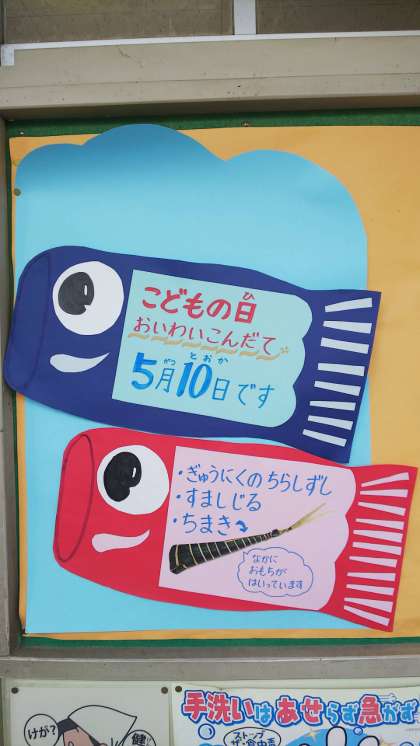 こどもの日
ひ
おいわいこんだて
5月10日です
がつ とおか
・ぎゅうにくのちらしずし
・すましじる
・ちまき
なかに
おもちが
はいっています
手洗いはあせらず急がず
けが?
健
ストップ
ザ・食中毒